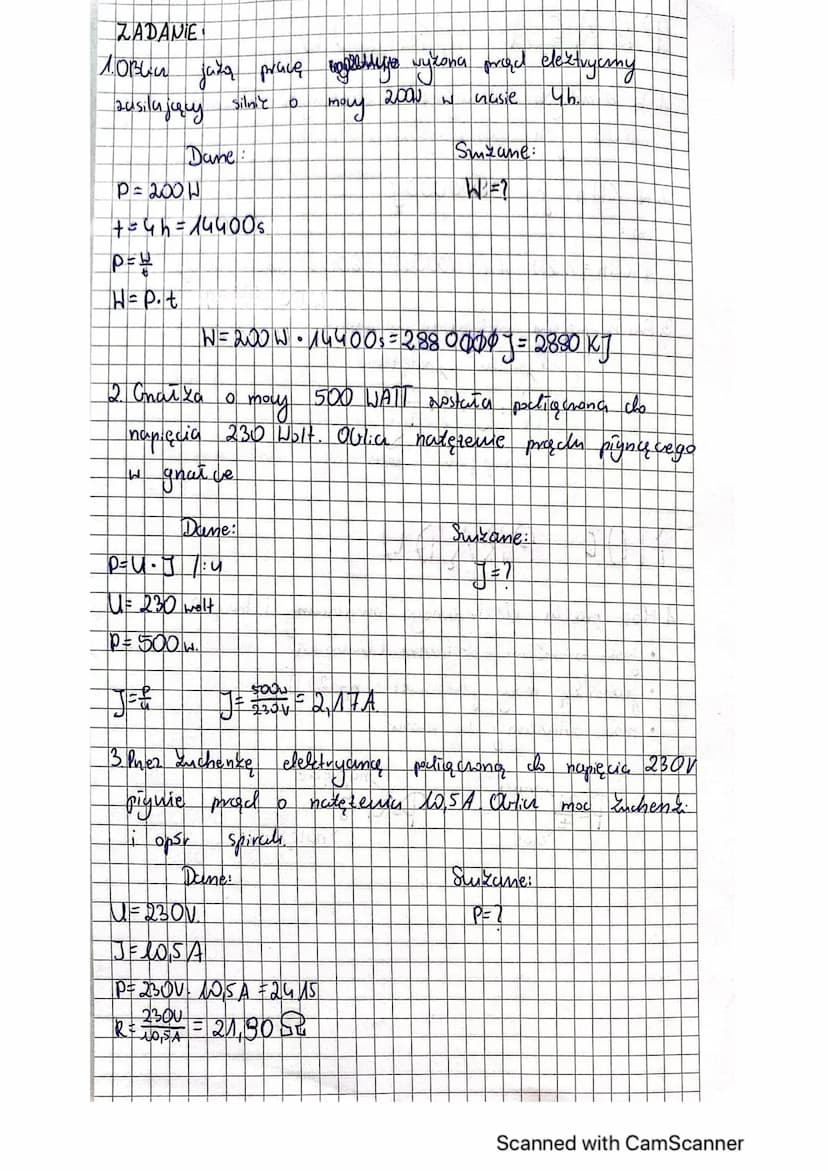 ZADANIE:
1. Oblicz jaką pracę wykona prąd elektryczny
zasilający silnik o mocy 200W w czasie 4h.
Dane: Szukane:
P = 200W W=?
t = 4h = 14400s
P = W/t
W = P·t
W = 200W · 14400s = 2880000J = 2880 KJ
2. Grzałka o mocy 500 WATT została podłączona do
napięcia 230 Wolt. Oblicz natężenie prądu płynącego
w grzałce
Dane: Szukane:
P=U·J /:U J=?
U= 230 wolt
P= 500w.
J=P/U J= 500w/230V = 2,17A
3. Przez kuchenkę elektryczną podłączoną do napięcia 230V
płynie prąd o natężeniu 10,5A. Oblicz moc kuchenki
i opór spirali.
Dane: Szukane:
U = 230V. P=?
J= 10,5A
P= 230V · 10,5A = 2415
R= 230V/10,5A = 21,90 Ω
Scanned with CamScanner